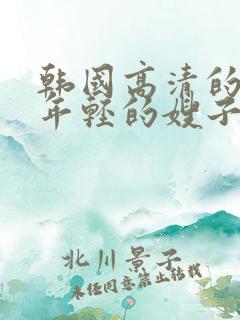 韩国高清的
年轻的嫂子
北川景子
未经同意禁止转载